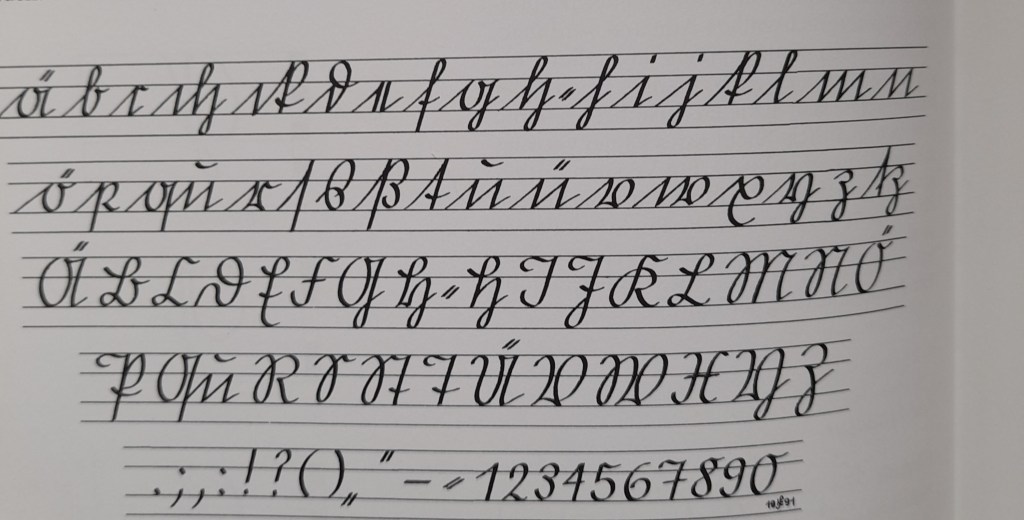 ä b c ch ck d e f g h ⸗ h i j k l m n
ö p qŭ r ſ s ß t ŭ ü v w x y z tz
Ä B C D E F G H ⸗ H I J K L M N Ö
P Qŭ R S St T Ü V W X Y Z
. ; , : ! ? ( ) „ “ – ⸗ 1 2 3 4 5 6 7 8 9 0